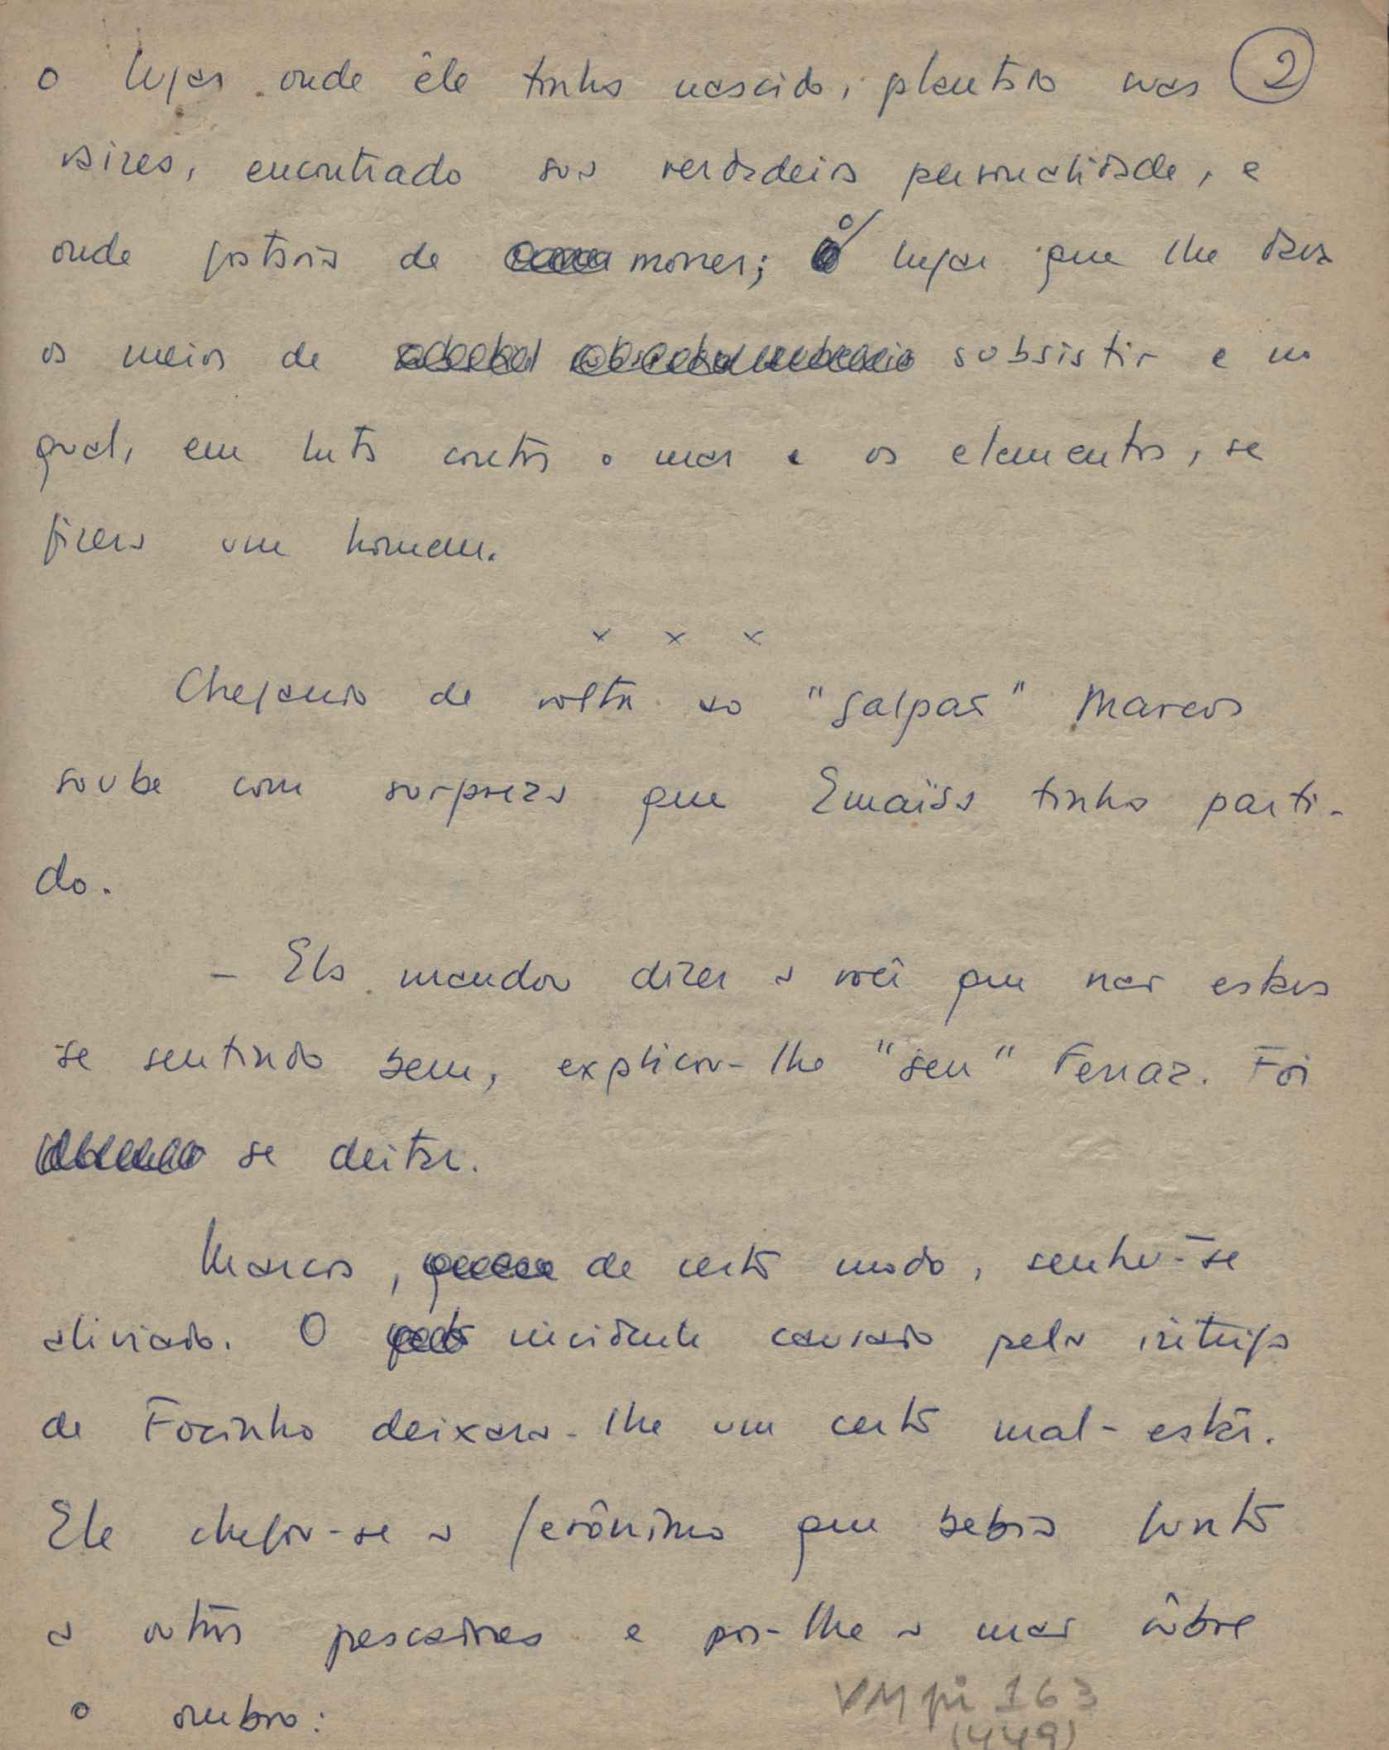 o lugar onde êle tinha nascido, plantado suas 2
raizes, encontrado sua verdadeira personalidade, e
onde gostaria de morrer; o lugar que lhe dava
os meios de subsistir e no
qual, em luta contra o mar e os elementos, se
fizera um homem.
x x x
Chegando de volta ao "galpão" Marcos
soube com surpreza que Emaísa tinha parti-
do.
- Ela mandou dizer a você que não estava
se sentindo bem, explicou-lhe "seu" Ferraz. Foi
se deitar.
Marcos, de certo modo, sentiu-se
aliviado. O incidente causado pela intriga
de Focinho deixara-lhe um certo mal-estár.
Ele chegou-se a Jerônimo que bebia junto
a outros pescadores e pos-lhe a mão sôbre
o ombro:
VMpi 163
(449)